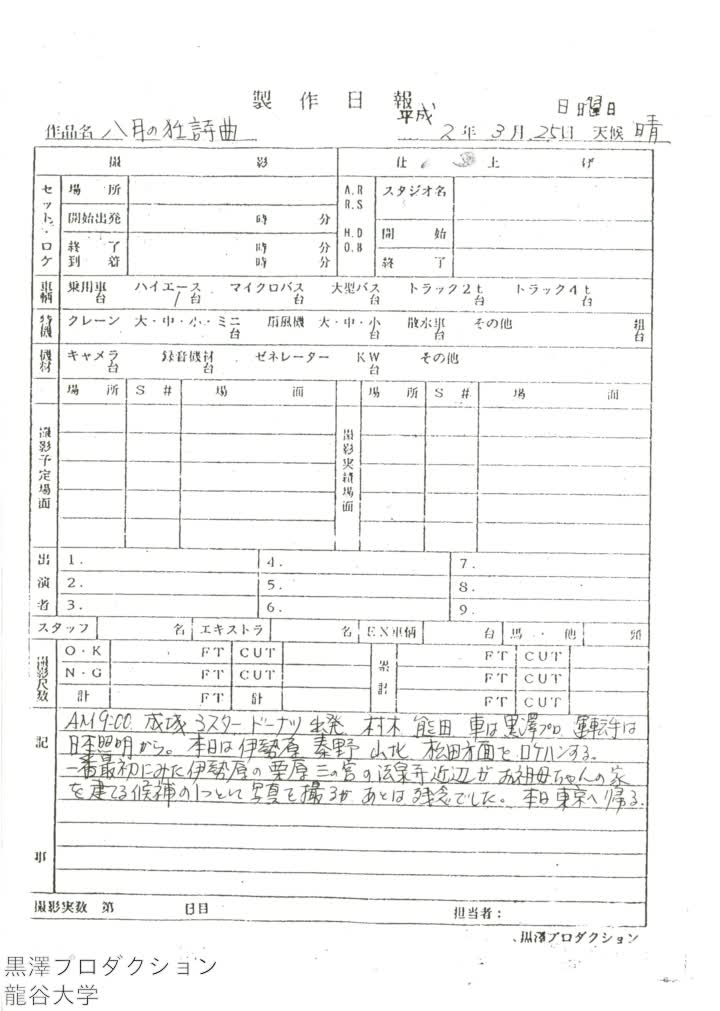 製作日報
平成 日曜日
作品名 八月の狂詩曲 2年 3月 25日 天候 晴
撮影 仕上げ
セット・ロケ 場所 A.R R.S スタジオ名
開始出発 時 分 H.D O.B 開始
終了 時 分
到着 時 分 終了
車輌 乗用車 台 ハイエース 1台 マイクロバス 台 大型バス 台 トラック2t 台 トラック4t 台
特機 クレーン 大・中・小・ミニ 台 扇風機 大・中・小 台 散水車 台 その他 組 台
機材 キャメラ 台 録音機材 台 ゼネレーター KW 台 その他
場所 S # 場面 場所 S # 場面
撮影予定場面 撮影実績場面
出演者 1. 4. 7.
2. 5. 8.
3. 6. 9.
スタッフ 名 エキストラ 名 EX車輌 台 馬・他 頭
撮影尺数 O・K FT CUT 累計 FT CUT
N・G FT CUT FT CUT
計 FT 計 FT CUT
記事
AM9:00 成城 ミスタードーナツ 出発 村木 熊田 車は黒澤プロ 運転手は
日本照明から。本日は伊勢原 秦野 山北 松田方面をロケハンする。
一番最初にみた伊勢原の栗原三の宮の浄泉寺近辺がお祖母ちゃんの家
を建てる候補の1つとして写真を撮るが あとは残念でした。本日東京へ帰る.
撮影実数 第 日目 担当者:
黒澤プロダクション
黒澤プロダクション
龍谷大学